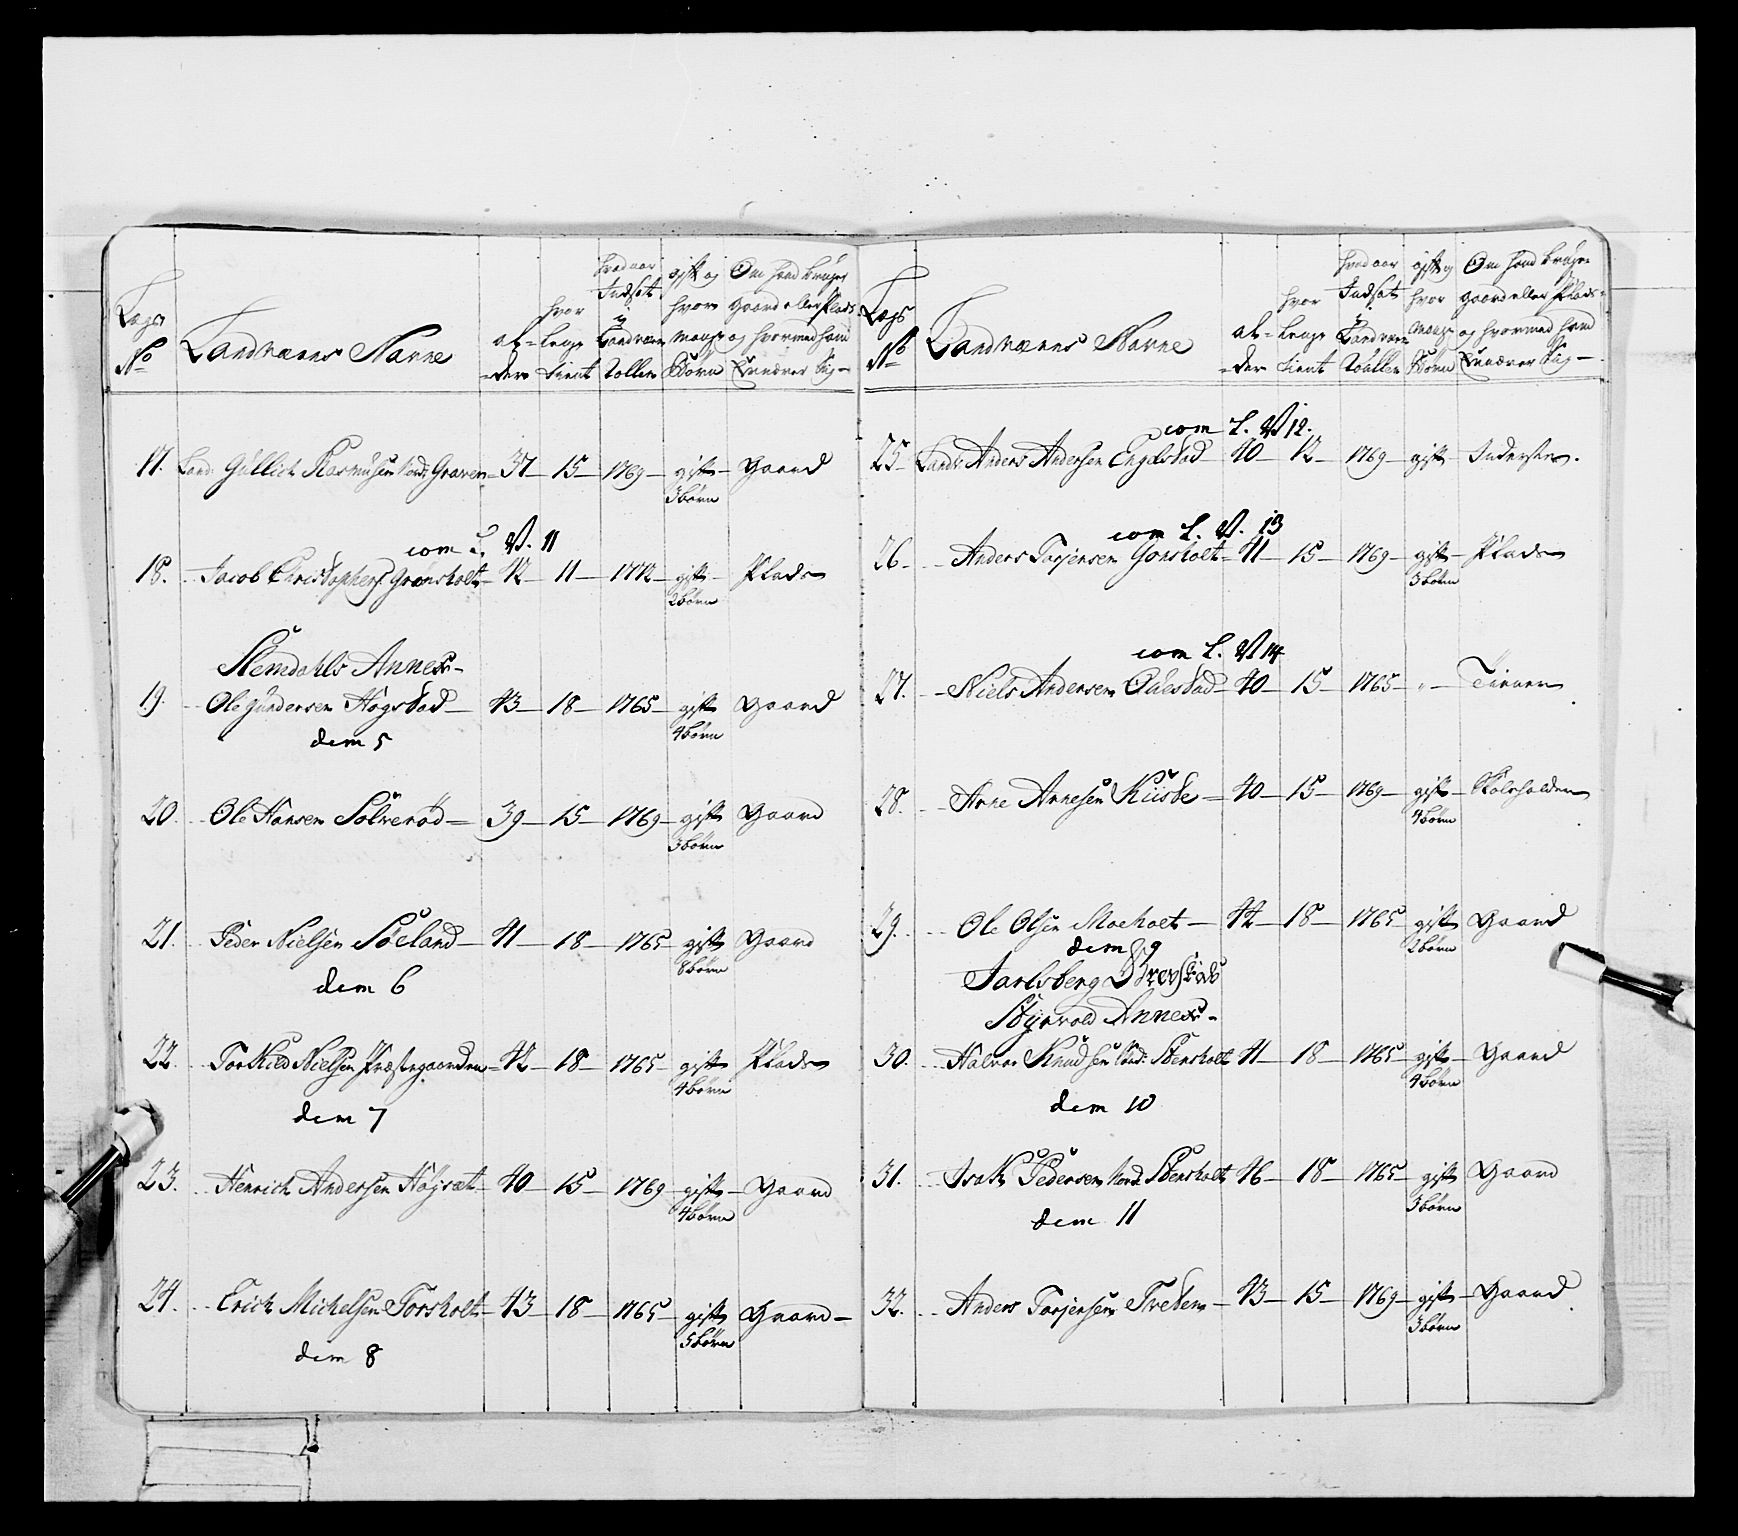 Lægs No
Landværns Navne
alder
hvor lenge tient
hvad aar Indsat i Landværn Rollen
gift og hvor mange Børn
Om hand bruger gaard eller Plads og hvormed hand Ernærer Sig
17. Land: Gullich Rasmusen Nord: Graven 37 15 1769 gift Gaard
3 børn
com L. N. 11
18. Jacob Christophers: Grønsholt 42 11 1772 gift Plads
2 børn
Slemdahls Annex
19. Ole Gundersen Hogstad 43 18 1765 gift Gaard
4 børn
dem 5
20. Ole Hansen Solverød 39 15 1769 gift Gaard
3 børn
21. Peder Nielsen Søeland 41 18 1765 gift Gaard
8 børn
dem 6
22. Torkild Nielsen Præstegaarden 42 18 1765 gift Plads
4 børn
dem 7
23. Henrich Andersen Højsæt 40 15 1769 gift Gaard
4 børn
24. Erich Michelsen Torsholt 43 18 1765 gift Gaard
5 børn
dem 8
Lægs No
Landværns Navne
alder
hvor lenge tient
hvad aar Indsat i Landværn Rullen
gift og hvor mange Børn
Om hand bruger gaard eller Plads og hvormed hand Ernærer Sig
com L. N 12.
25. Landv: Anders Andersen Engelstad 40 12 1769 gift Inderste
com L. N. 13
26. Anders Torjersen Gonsholt 41 15 1769 gift Plads
3 børn
com L. N 14
27. Niels Andersen 40 15 1765 " Tiener
28. Arne Arnesen Kiiste 40 15 1769 gift Skoleholder
4 børn
29. Ole Olsen Moeholt 42 18 1765 gift Gaard
2 børn
dem 9
Jarlsberg Grevskab
Styrvold Annex
30. Halvor Knudsen Nord: Stensholt 41 18 1765 gift Gaard
4 børn
dem 10
31. Isak Pedersen Nord: Stensholt 46 18 1765 gift Gaard
3 børn
dem 11
32. Anders Torjersen Treden 43 15 1769 gift Gaard
3 børn